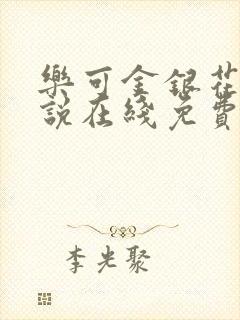 樂可金銀花
說在綫免費
李光聚